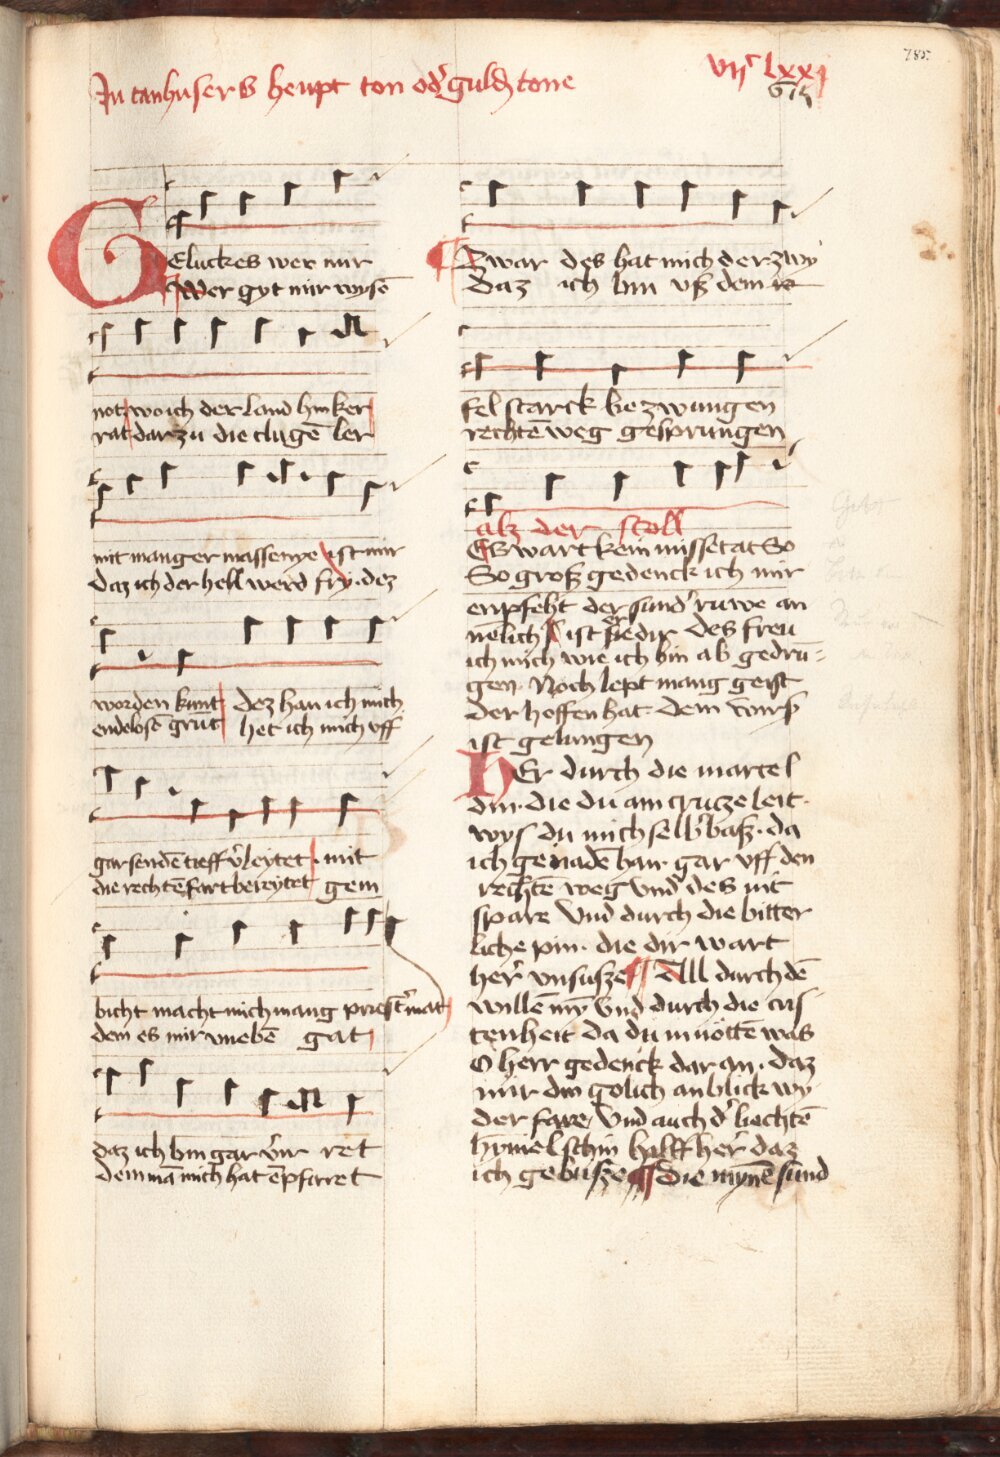 In tanhusers heupt ton od' guldẽ tone
vijͨ lxxj
785
Geluckes wer mir
Wer gyt mir wysẽ
not wo ich der land hin ker
rat dar zu die clugẽ ler
mit manger massenye ist mir
daz ich der hell werd fry · dez
worden kunt dez han ich mich
endelosẽ grut het ich mich vff
gar sendẽ tieff v'leytet · mit
die rechtẽ fart bereytet gem
bicht macht mich mang priest' mat
dem es mir vnebẽ gat
daz ich bin gar v'ir ret
dem mã mich hat ẽpfirret
Zwar des hat mich der zwy
daz ich bin vß dem re
fel starck bezwungen
rechtẽ weg gesprungen
alz der stoll
Es wart kein missetat So
So groß gedenck ich mir
enpfeht der sund' ruwe an
nẽlich ist sie dir des freu
ich mich wie ich bin ab gedrũ
gen · Noch lept mang geist
der hoffen hat · dem
ist gelungen
HEr durch die martel
din · die du am cruze leit ·
wys du mich selb' baß · da
ich genadẽ han · gar vff den
rechtẽ weg vnd des nit
spare Vnd durch die bitter
liche pin · die dir wart
her' vnsusze All durch dẽ
willẽ mỹ vnd durch die cris
tenheit da du in nöttẽ was
O herr gedenck dar an · daz
mir din götlich anblick wy
der fare Vnd auch d' liechtẽ
hỹmel schin hilff her' daz
ich gebusze die mynẽ sund